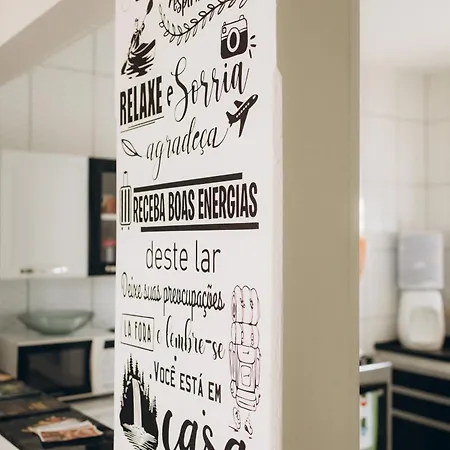 RELAXE e Sorria
agradeça
RECEBA BOAS ENERGIAS
deste lar
Deixe suas preocupações
LÁ FORA e lembre-se
VOCÊ ESTÁ EM
casa